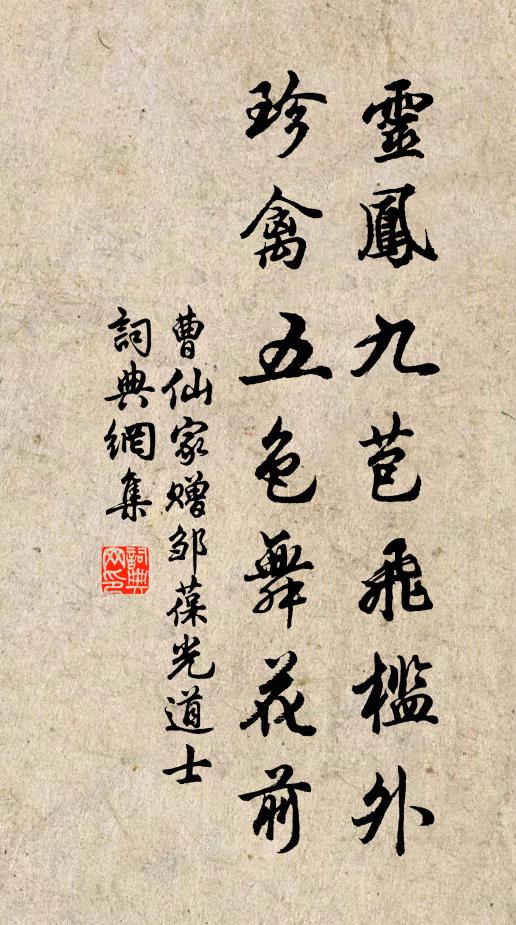 靈鳳九苞飛檻外
珍禽五色舞花前
曹仙家贈邹葆光道士
詞典網集
詞典网印